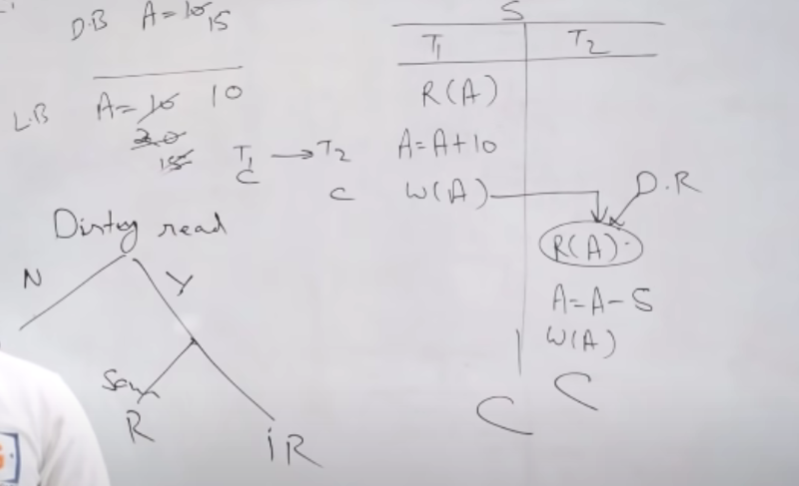 D.B A=10 15
L.B A=10 10
20
15
T1 → T2
C C
Dirty read
N Y
R
iR
S
T1 T2
R(A)
A=A+10
W(A)
D.R
R(A)
A=A-5
W(A)
C
C